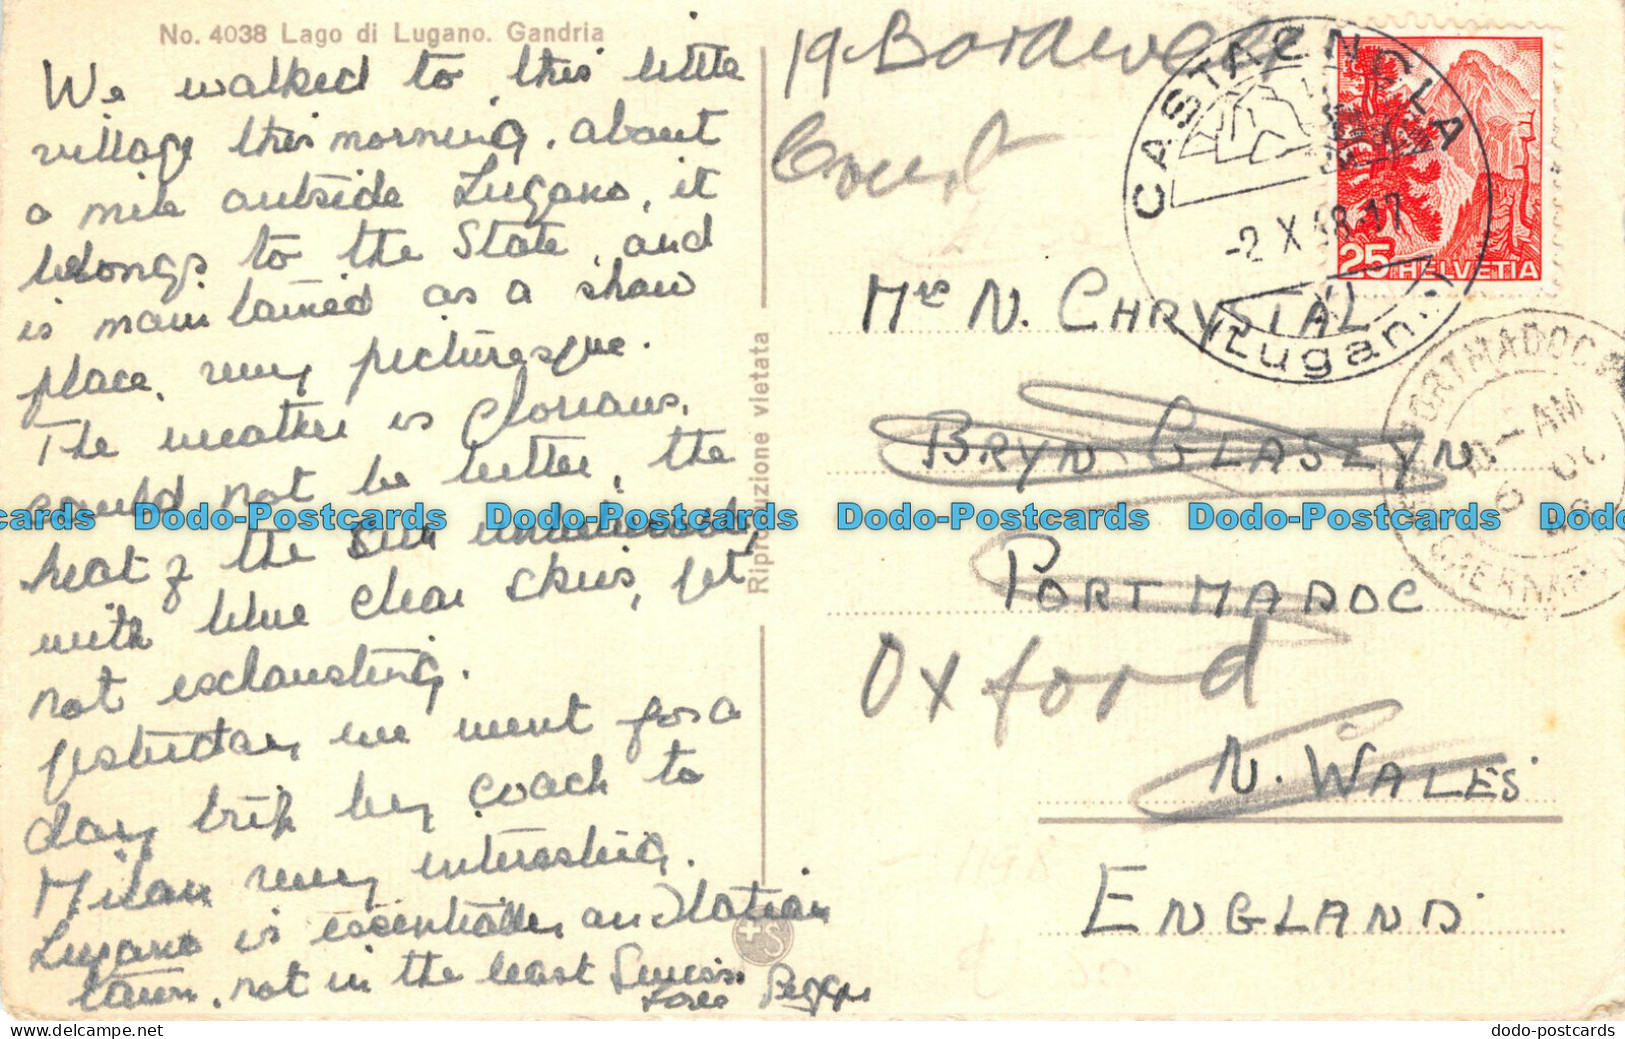 No. 4038 Lago di Lugano. Gandria
We walked to this little
village this morning, about
a mile outside Lugano, it
belongs to the State, and
is maintained as a show
place, very picturesque.
The weather is glorious,
could not be better, the
heat of the sun unbelievable,
with blue clear skies, yet
not exhausting.
yesterday we went for a
day trip by coach to
Milan very interesting.
Lugano is essentially an Italian
town, not in the least Swiss
Love Peggy
Riproduzione vietata
S
19 Bardwell
Court
CASTAGNOLA
-2 X 48-17
(Lugano)
25 HELVETIA
Mrs N. CHRYSTAL
BRYN GLASLYN.
PORTMADOC
Oxford
N. WALES
ENGLAND
PORTMADOC
10 - AM
6 OC
48
CAERNARVON
Dodo-Postcards Dodo-Postcards Dodo-Postcards Dodo-Postcards
dodo-postcards.com
dodo-postcards